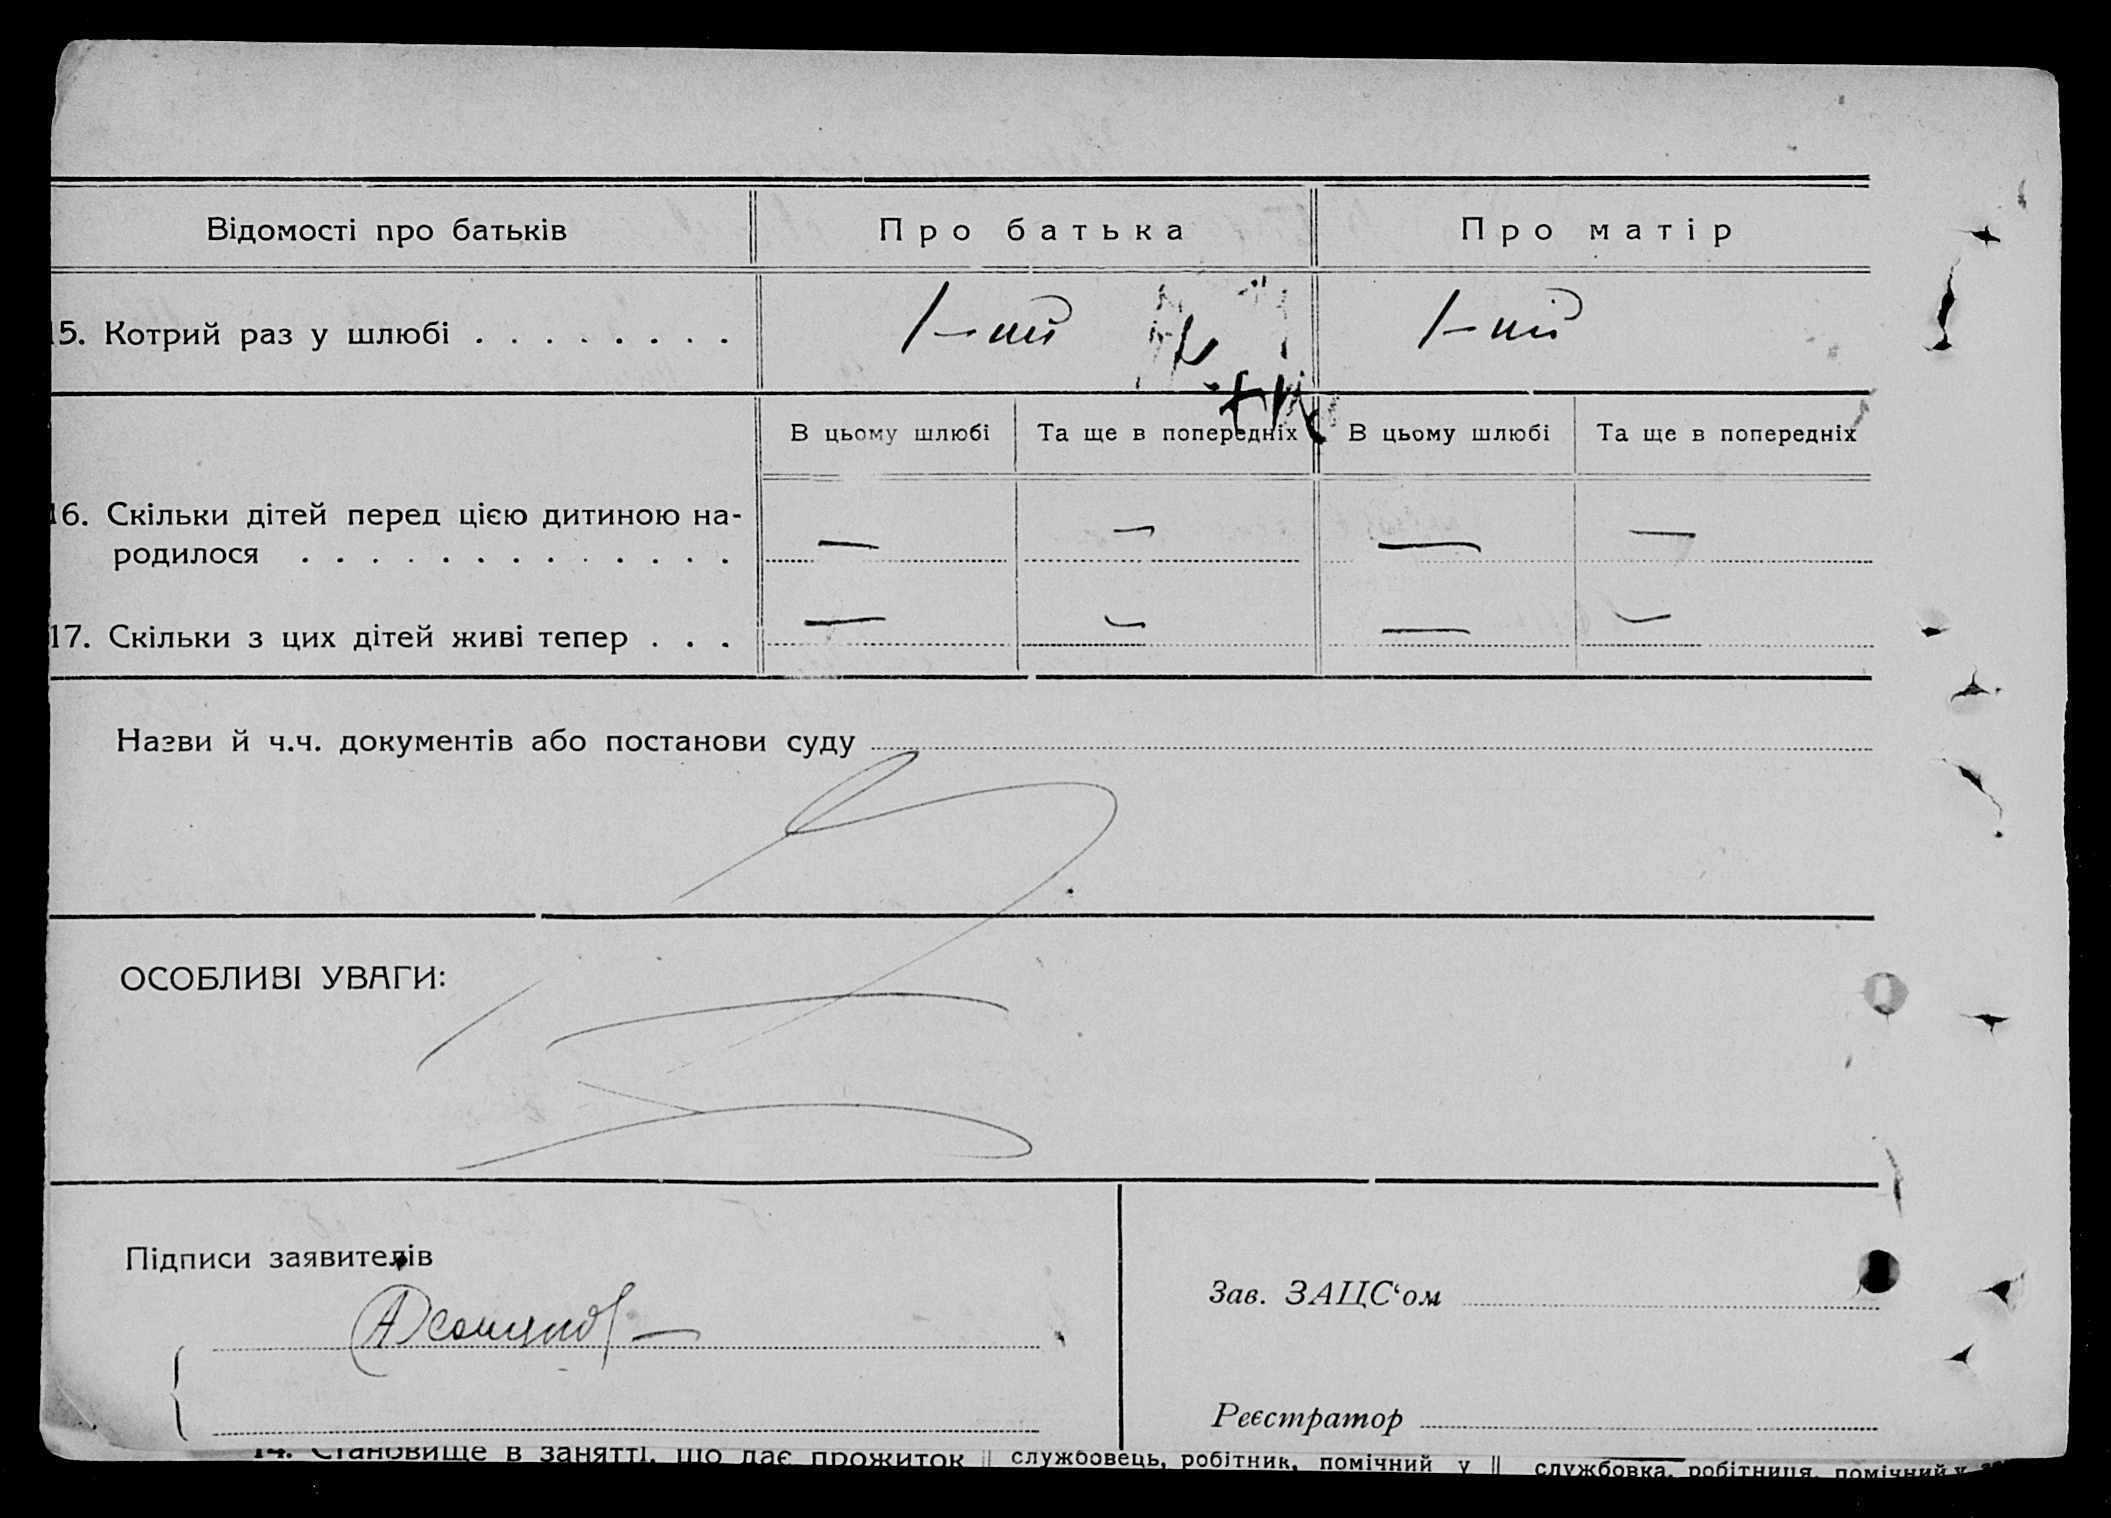 Відомості про батьків Про батька Про матір
15. Котрий раз у шлюбі . . . . . . . . І-ий І-ий
В цьому шлюбі Та ще в попередніх В цьому шлюбі Та ще в попередніх
16. Скільки дітей перед цією дитиною на-
родилося . . . . . . . . . . . . . — — — —
17. Скільки з цих дітей живі тепер . . . — — — —
Назви й ч.ч. документів або постанови суду
ОСОБЛИВІ УВАГИ:
Підписи заявителів
Зав. ЗАЦС‘ом
Реєстратор
14. Становище в занятті, що дає прожиток службовець, робітник, помічний у службовка, робітниця, помічний у